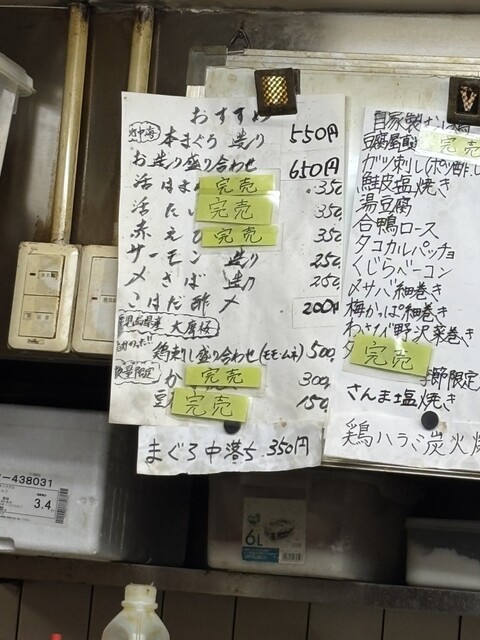 おすすめ
地中海 本まぐろ 造り 550円
お造り盛り合わせ 650円
活はまち 完売 350
活たい 完売 350
赤えび 完売 350
サーモン 造り 250
〆さば 造り 250
こはだ酢〆 200円
大摩桜
鶏刺し盛り合わせ(モモ・ムネ) 500
数量限定 か 完売 300
豆 完売 150
まぐろ中落ち 350円
自家製
豆腐 完売
ガツ刺し(ポン酢
鮭皮塩焼き
湯豆腐
合鴨ロース
タコカルパッチョ
くじらベーコン
〆サバ細巻き
梅かっぱ細巻き
わさび野沢菜巻き
完売
季節限定
さんま塩焼き
鶏ハラミ炭火焼
438031
3.4
6L